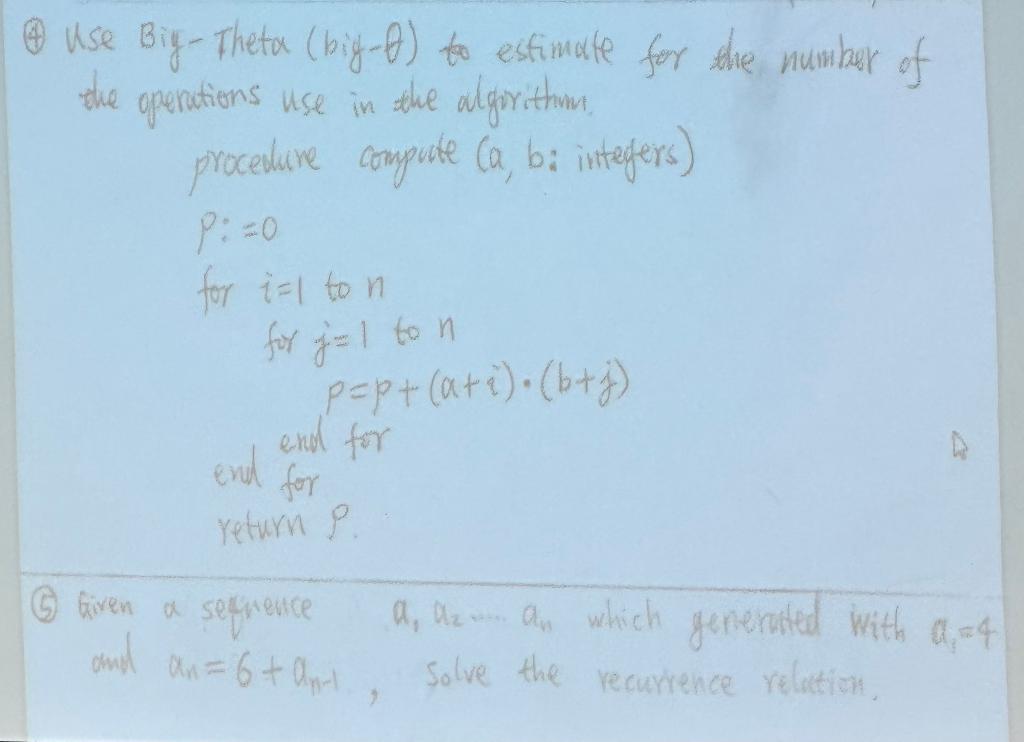 ④ Use Big-Theta (big-θ) to estimate for the number of
the operations use in the algorithm.
procedure compute (a, b: integers)
p:=0
for i=1 to n
for j=1 to n
p=p+(a+i)·(b+j)
end for
end for
return p.
⑤ Given a sequence a₁ a₂ ..... aₙ which generated with a₁=4
and aₙ=6+aₙ₋₁, solve the recurrence relation.